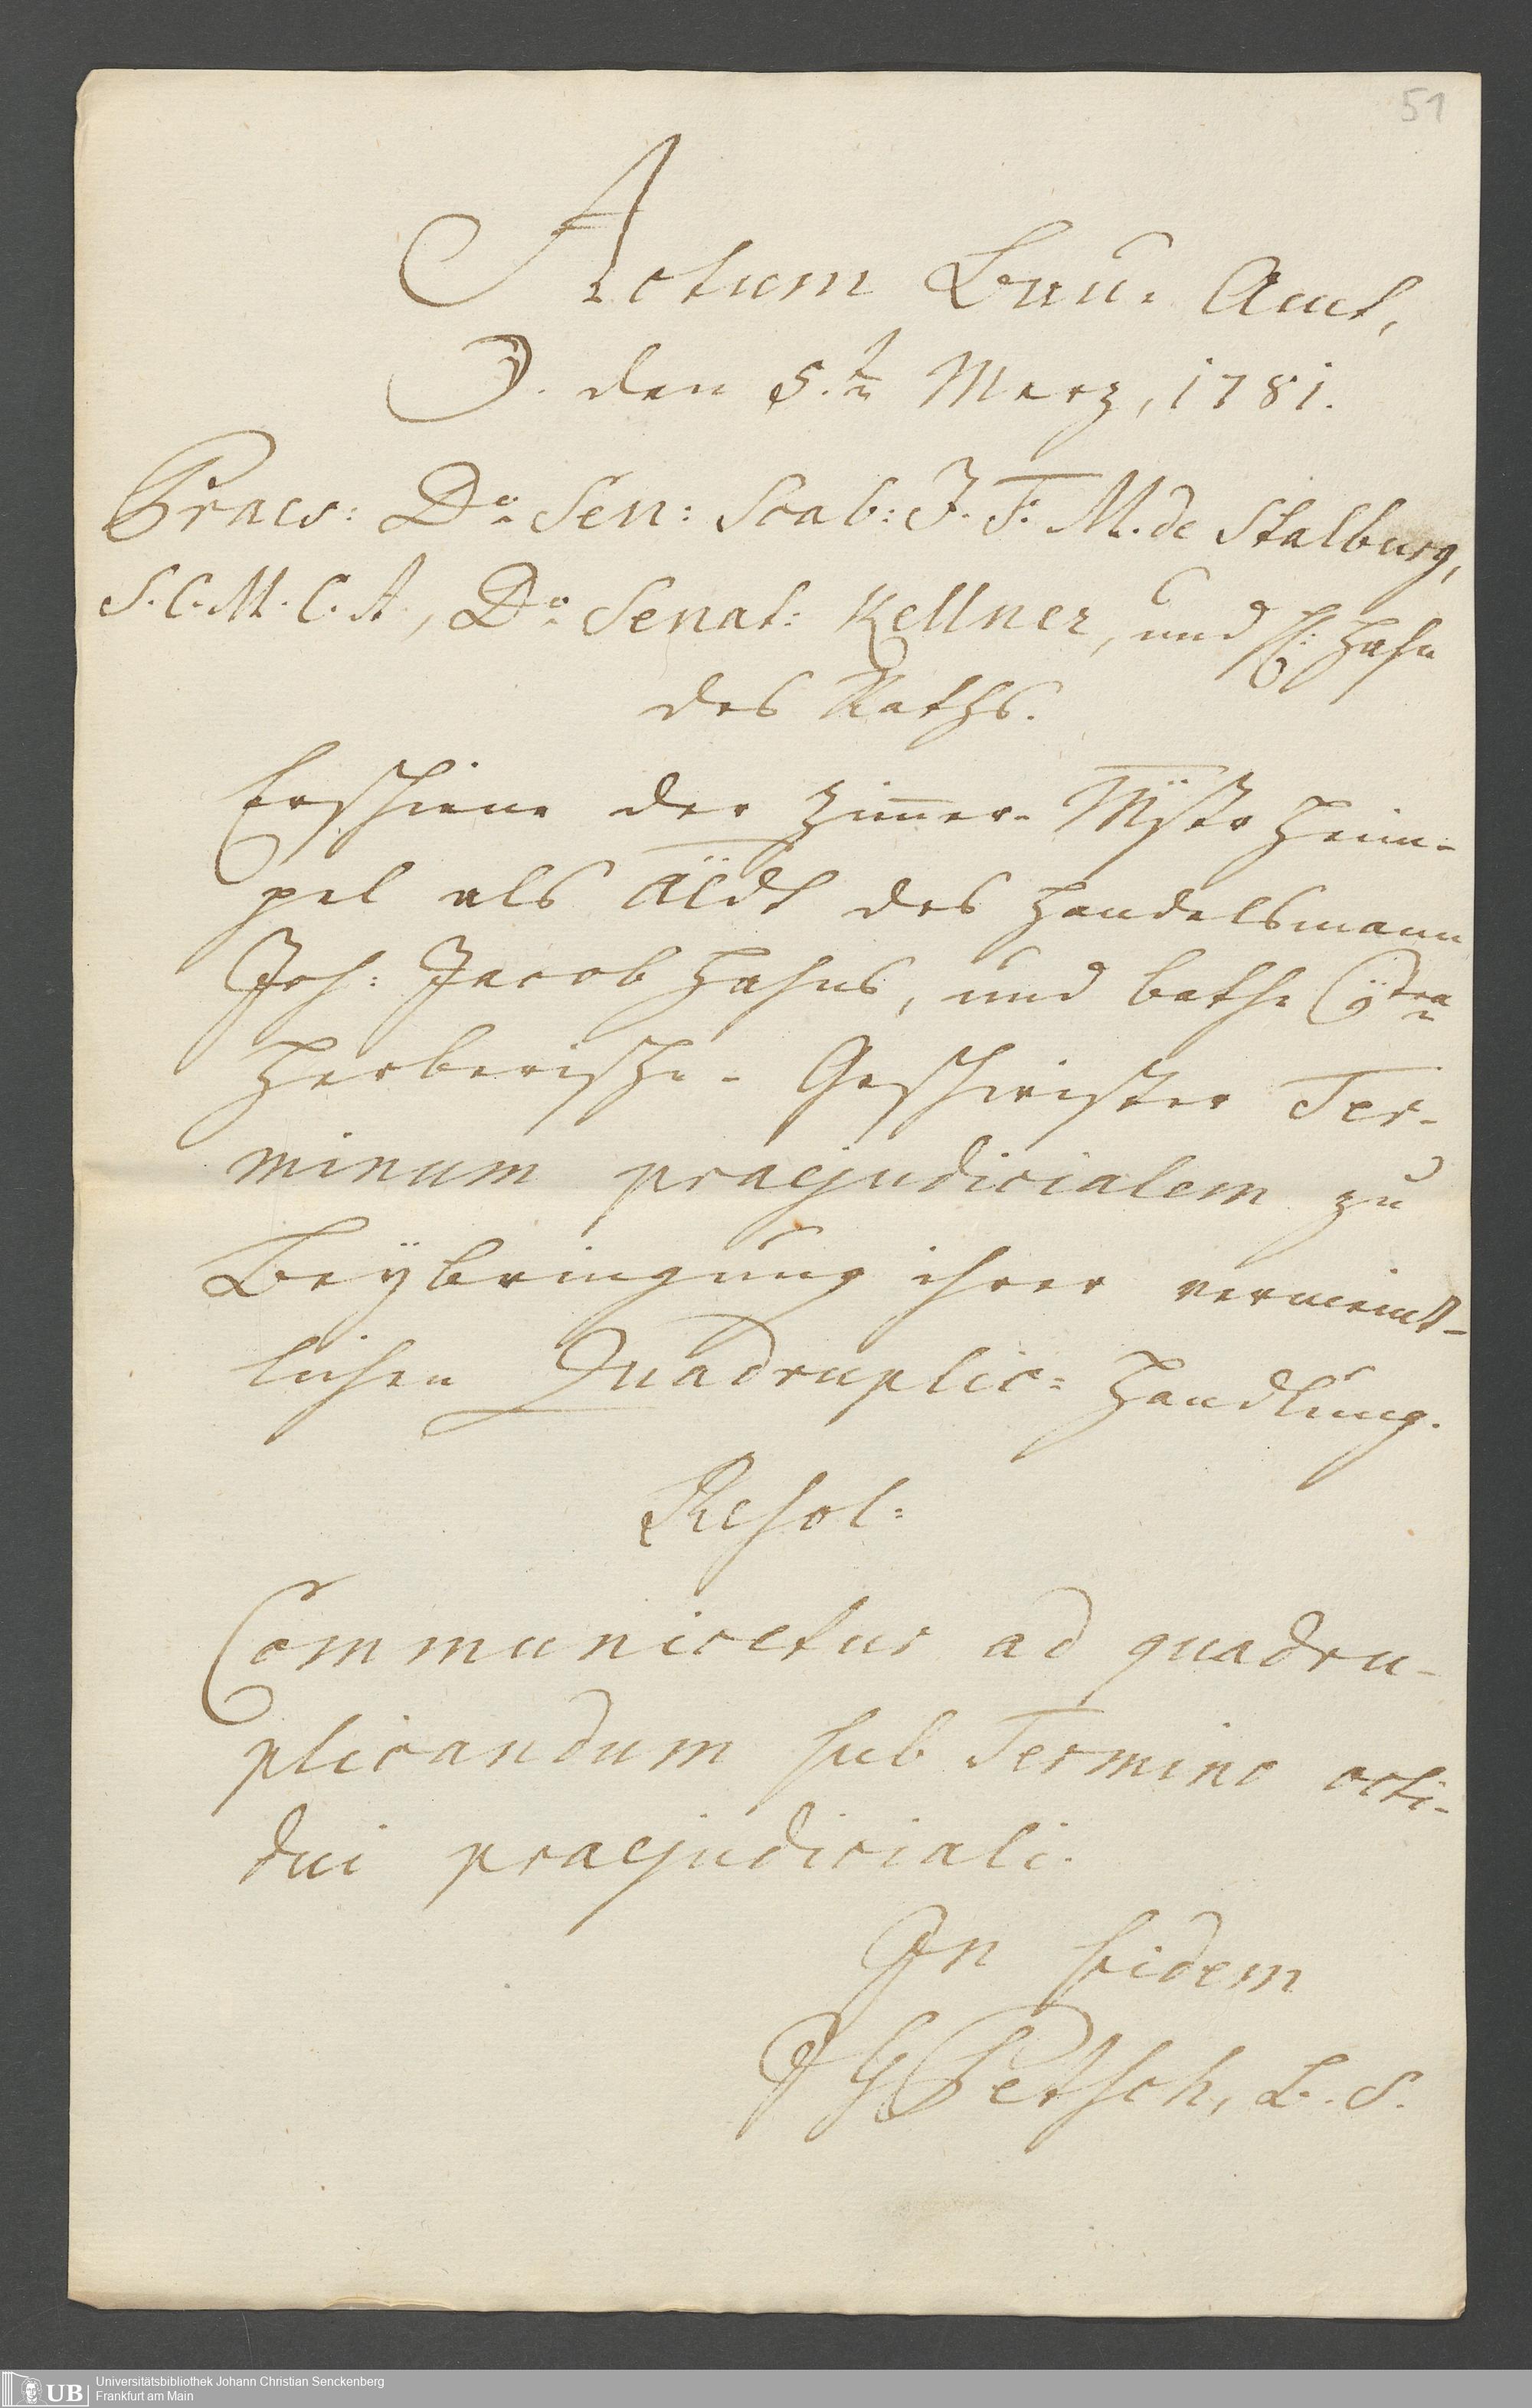 51
Actum Bau- Amt,
☽. den 5.tn Merz, 1781.
Praes: Do. Sen: Scab: J. F. M. de Stalburg,
S. C. M. C. A., Do. Senat: Kellner, und H: Hahn
des Raths.
Erschiene der Zimmer- Mstr Heim-
pel als Mdt des Handelsmann
Joh: Jacob Hahns, und bathe Ctra
Herberische- Geschwister Ter-
minum praejudicialem zu
Beÿbringung ihrer vermeint-
lichen Quadruplic- Handlung.
Resol:
Communicetur ad quadru-
plicandum sub Termino octi-
dui praejudiciali.
In fidem
J G Petsch, B. S.
UB
Universitätsbibliothek Johann Christian Senckenberg
Frankfurt am Main